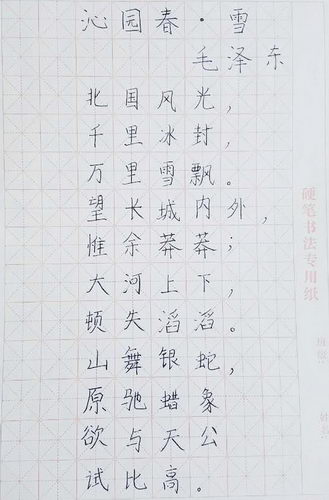 沁园春·雪
毛泽东
北国风光，
千里冰封，
万里雪飘。
望长城内外，
惟余莽莽；
大河上下，
顿失滔滔。
山舞银蛇，
原驰蜡象
欲与天公
试比高。
硬笔书法专用纸